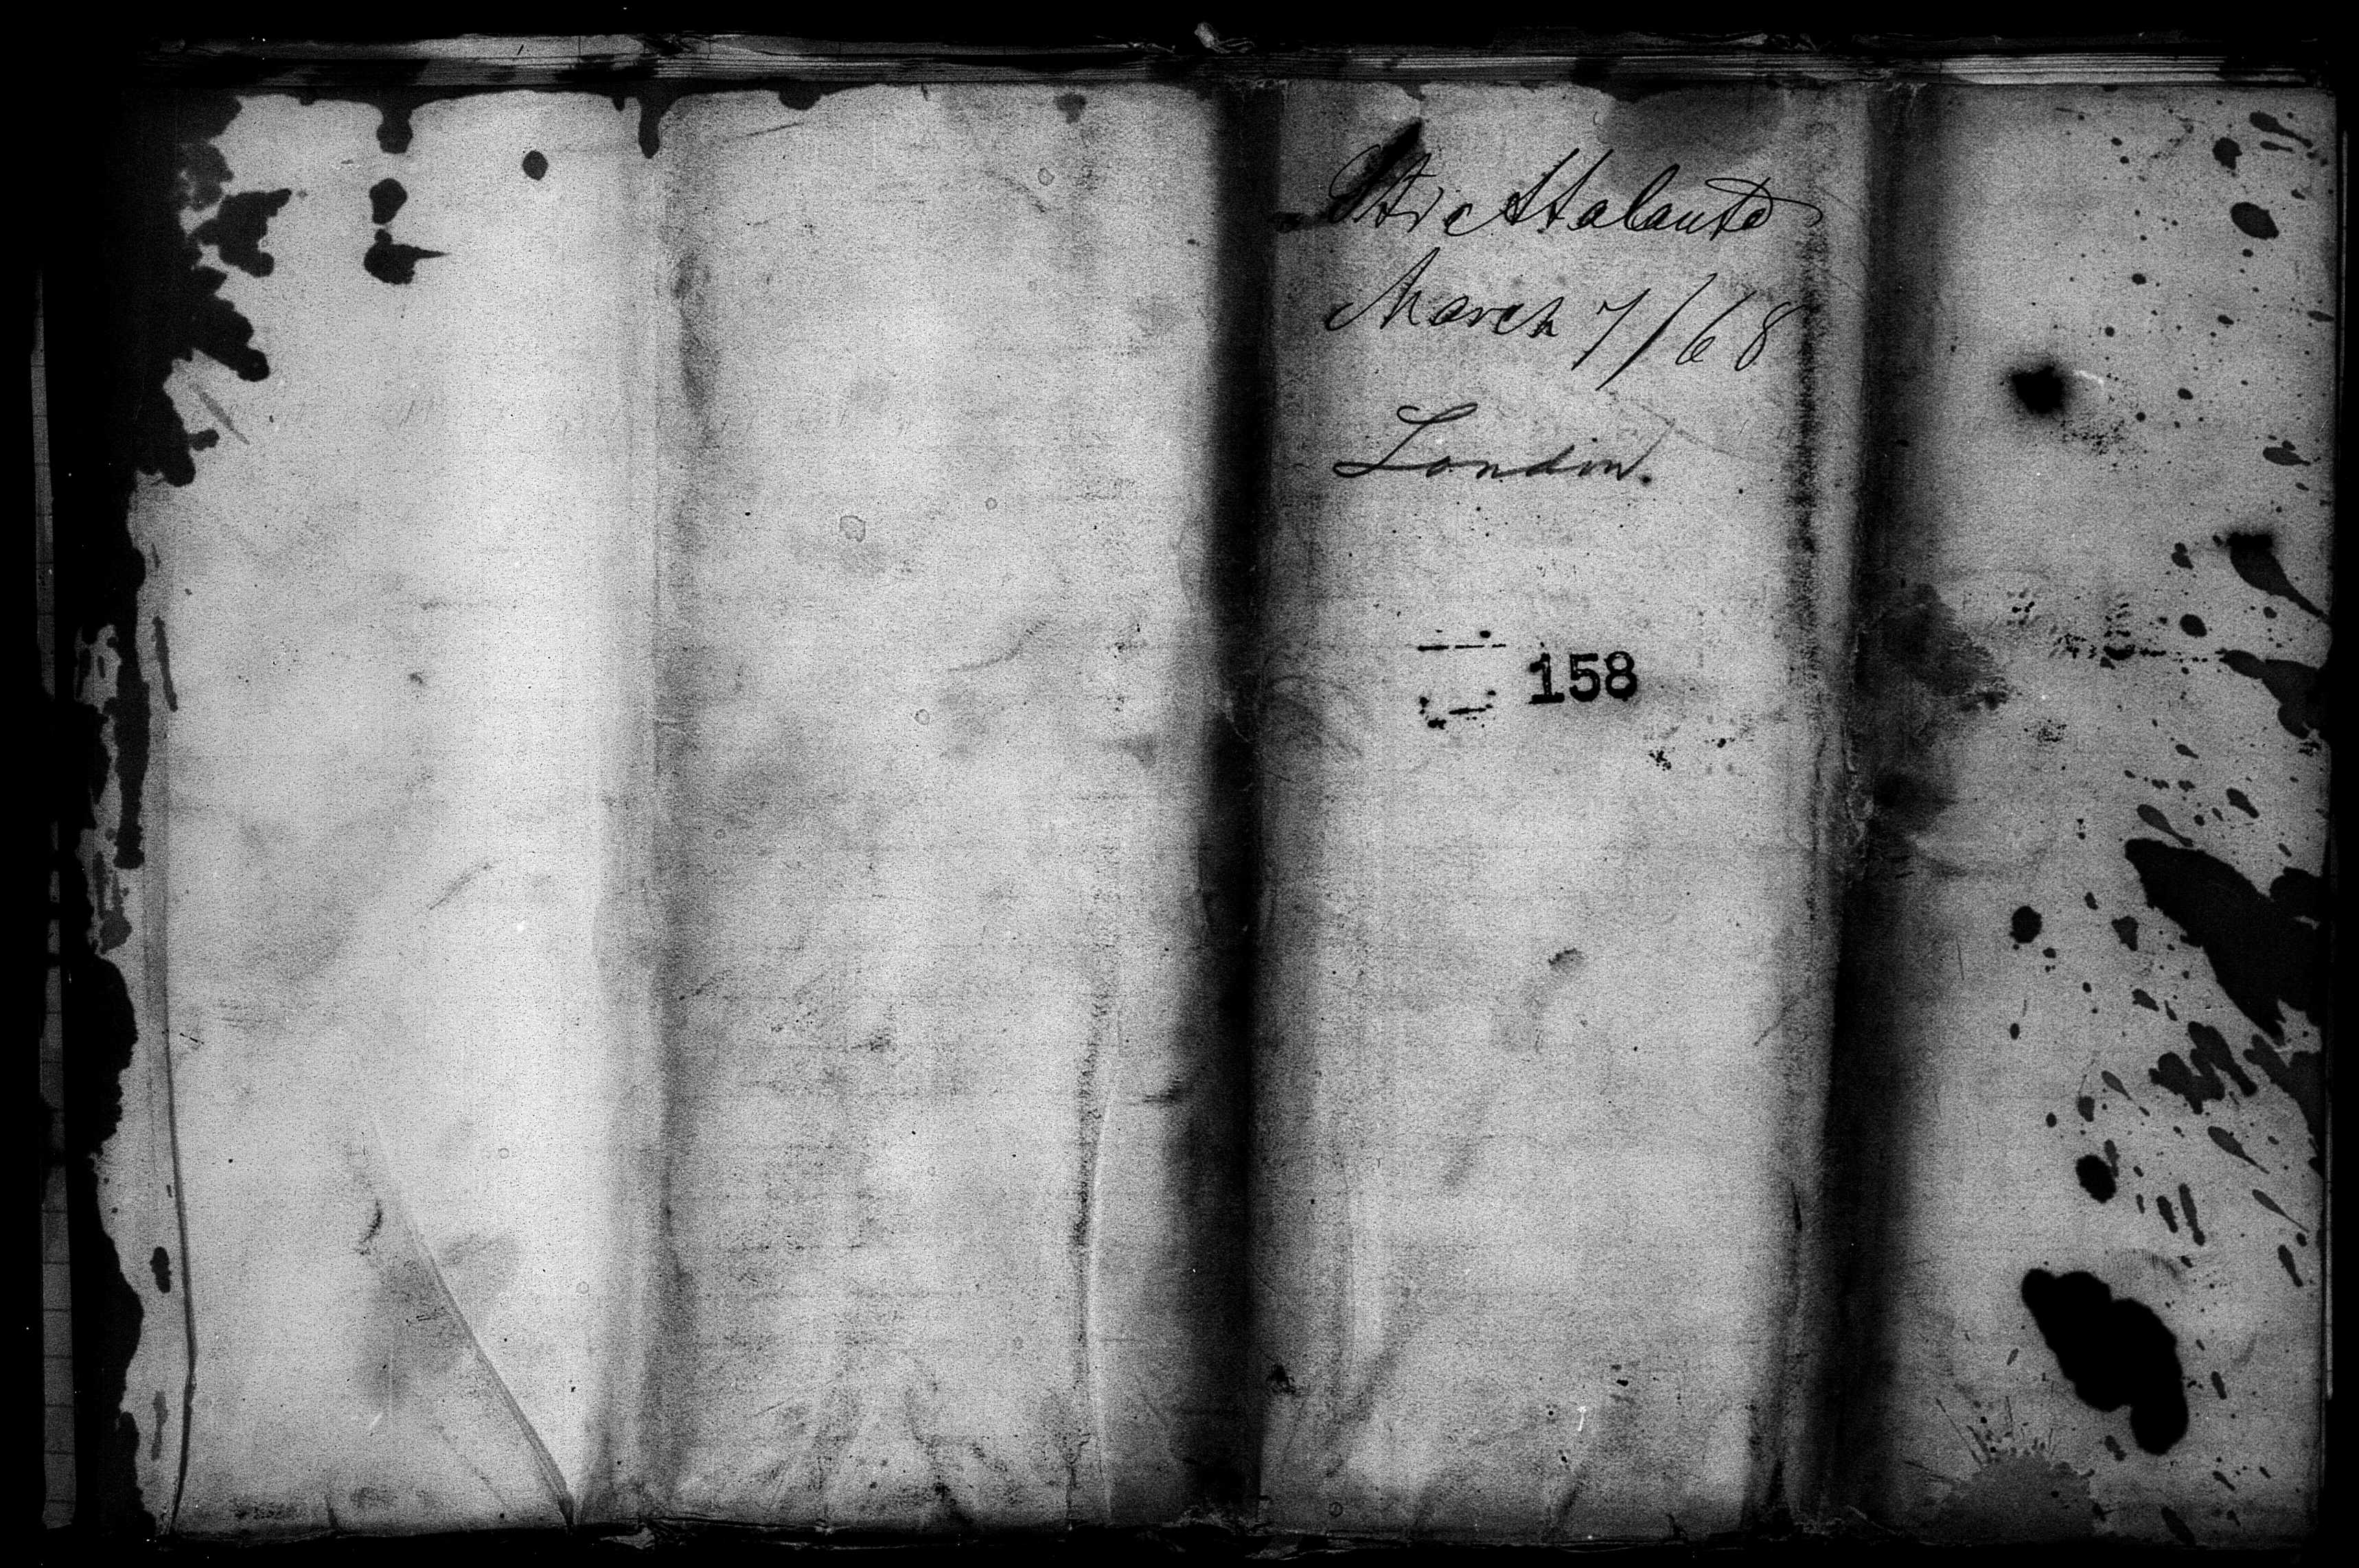 Str Atalanta
March 7/68
London.
158